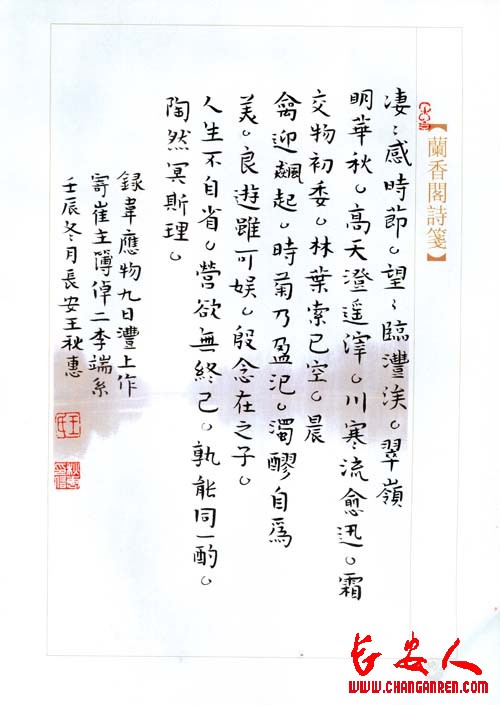 【蘭香閣詩箋】
凄〻感時節。望〻臨灃涘。翠嶺
明華秋。高天澄遥滓。川寒流愈迅。霜
交物初委。林葉索已空。晨
禽迎飆起。時菊乃盈氾。濁醪自爲
美。良遊雖可娱。殷念在之子。
人生不自省。營欲無終已。孰能同一酌。
陶然冥斯理。
録韋應物九日澧上作
寄崔主簿倬二李端系
壬辰冬月長安王秋惠
长安人
WWW.CHANGANREN.COM